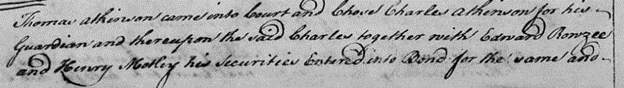 Thomas Atkinson came into Court and Chose Charles Atkinson for his
Guardian and thereupon the said Charles together with Edward Rowzee
and Henry Motley his Securities Entered into Bond for the same and